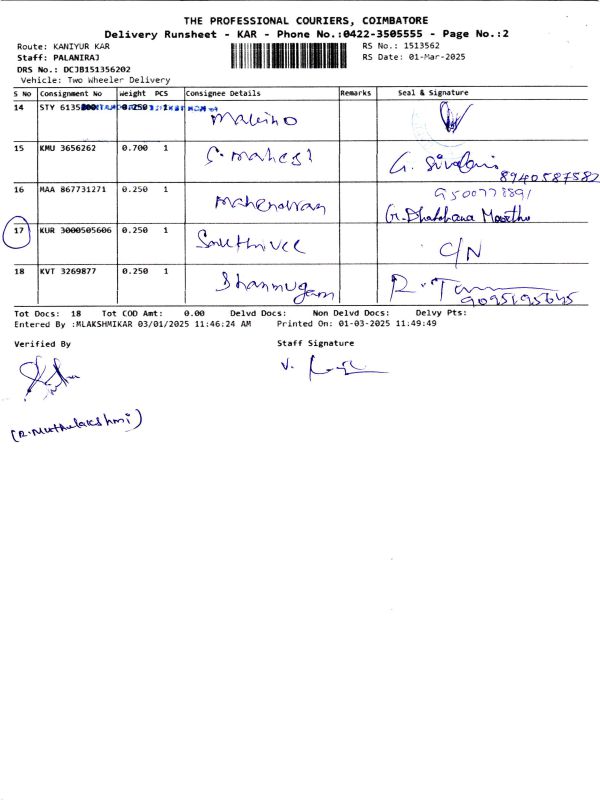 THE PROFESSIONAL COURIERS, COIMBATORE
Delivery Runsheet - KAR - Phone No.:0422-3505555 - Page No.:2
Route: KANIYUR KAR RS No.: 1513562
Staff: PALANIRAJ RS Date: 01-Mar-2025
DRS No.: DCJB151356202
Vehicle: Two Wheeler Delivery
S No Consignment No Weight PCS Consignee Details Remarks Seal & Signature
14 STY 6135 0.250 1
15 KMU 3656262 0.700 1 S. mahesh
8940587582
16 MAA 867731271 0.250 1
G. Dhatchana Moorthi
17 KUR 3000505606 0.250 1 C/N
18 KVT 3269877 0.250 1 Shanmugam
9095195645
Tot Docs: 18 Tot COD Amt: 0.00 Delvd Docs: Non Delvd Docs: Delvy Pts:
Entered By :MLAKSHMIKAR 03/01/2025 11:46:24 AM Printed On: 01-03-2025 11:49:49
Verified By Staff Signature
V.
(R. Muthulakshmi)